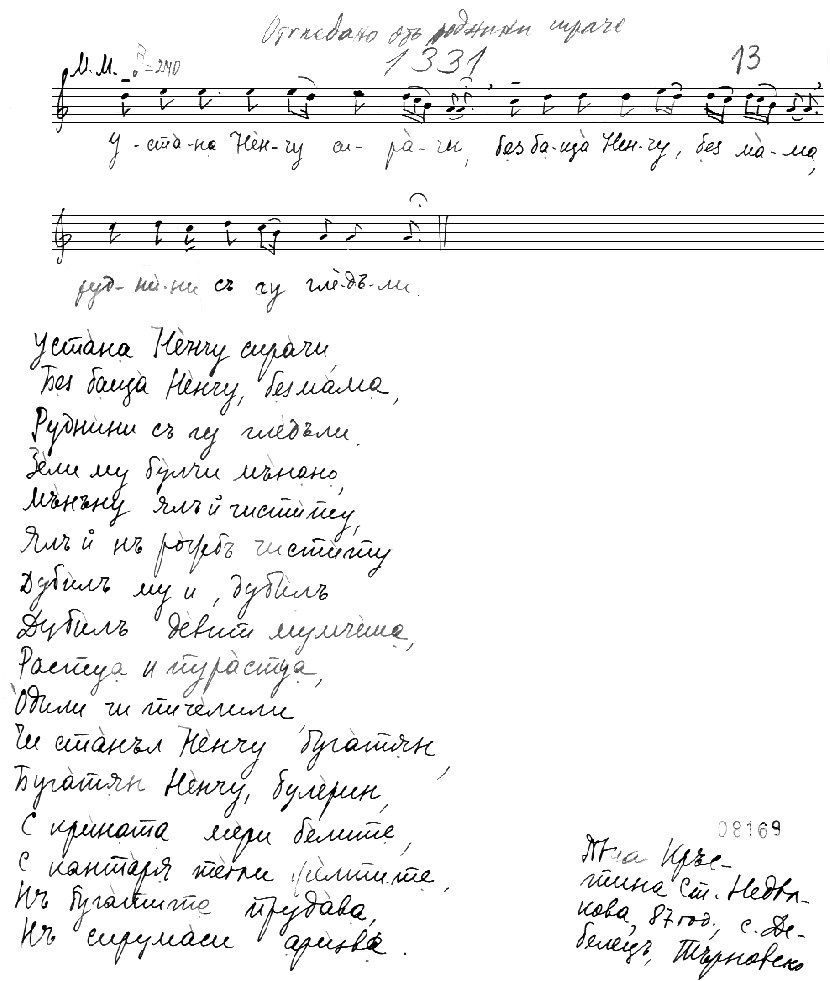 Отгледано отъ роднини сираче
1331 13
М.М. =240
У-ста-на Нѐн-чу си-ра̀-чи, без ба-ща Нен-чу, без ма̀-ма,
руд-нѝ-ни съ гу глѐ-дъ-ли.
Уста̀на Нѐнчу сира̀чи,
Без баща Нѐнчу, без ма̀ма,
Руднѝни съ гу глѐдъли.
Зѐли му бу̀лчи мъ̀нано,
Мъ̀нъну ялъ й чистѝту,
Ялъ й нъ ро̀жбъ чистѝту
Дубѝлъ му и, дубѝлъ
Дубѝлъ дѐвит мумчѐта,
Растуа и пура̀стуа,
О̀дили чи пичѐлили
Чи ста̀нъл Нѐнчу буга̀тян,
Буга̀тян Нѐнчу, булѐрин,
С крината мери бѐлите,
С канта̀ря тегли
Нъ буга̀тите прудава,
Нъ сирума̀си арѝзва.
08169
Пѣла Кръс-
тина Ст. Недял-
кова, 87 год., с. Де-
белецъ, Търновско